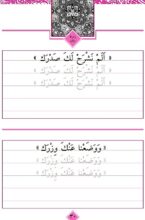 « أَلَمْ نَشْرَحْ لَكَ صَدْرَكَ »
« أَلَمْ نَشْرَحْ لَكَ صَدْرَكَ »
« أَلَمْ نَشْرَحْ لَكَ صَدْرَكَ »
« وَوَضَعْنَا عَنْكَ وِزْرَكَ »
« وَوَضَعْنَا عَنْكَ وِزْرَكَ »
« وَوَضَعْنَا عَنْكَ وِزْرَكَ »